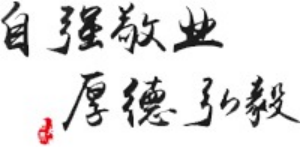 自强敬业
厚德弘毅